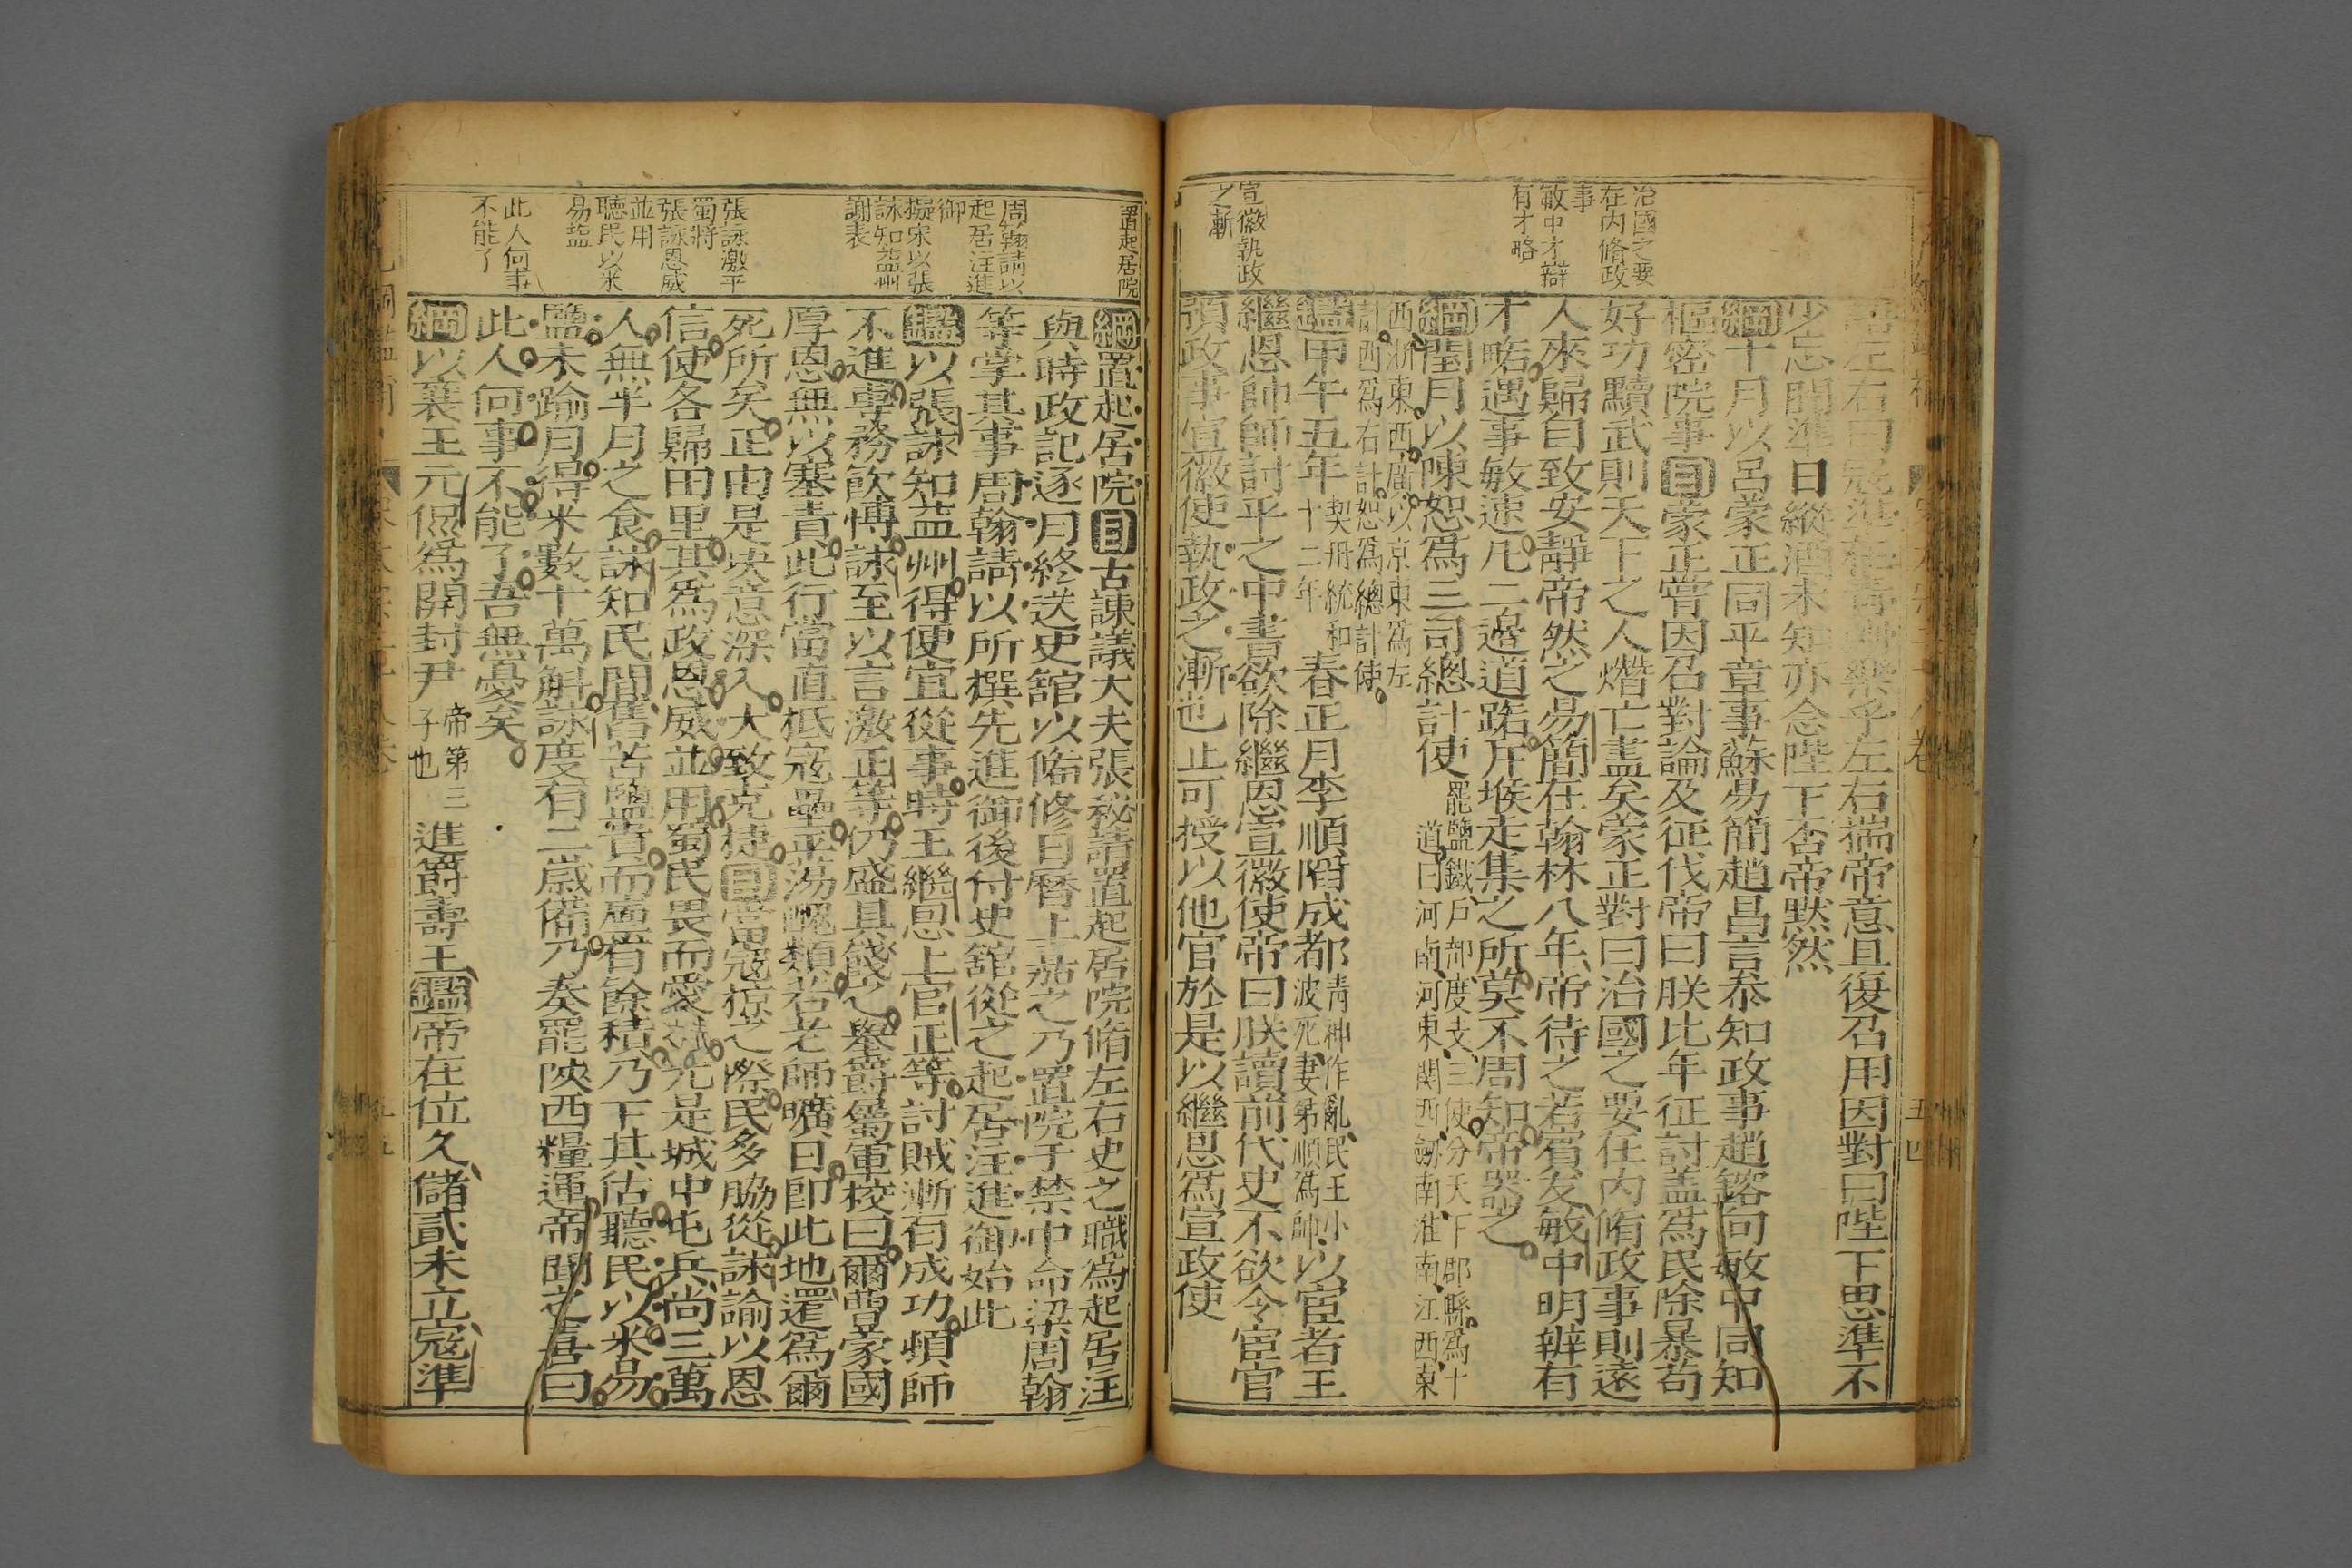 治國之要
在内脩政
事
敏中才辯
有才略
宣徽執政
之漸
語左右曰寇準在青州樂乎左右揣帝意且復召用因對曰陛下思準不
少忘聞準日縱酒未知亦念陛下否帝默然
綱十月以呂蒙正同平章事蘇易簡趙昌言叅知政事趙鎔向敏中同知
樞密院事目蒙正嘗因召對論及征伐帝曰朕比年征討盖為民除暴苟
好功黷武則天下之人熸亡盡矣蒙正對曰治國之要在内脩政事則遠
人來歸自致安靜帝然之易簡在翰林八年帝待之若賓友敏中明辨有
才略遇事敏速凡二邉道路斥堠走集之所莫不周知帝器之
綱閏月以陳恕為三司總計使罷鹽鐵戶部度支三使分天下郡縣為十
道曰河南河東關西劍南淮南江西東
西浙東西廣以京東為左
計西為右計恕為總計使
鑑甲午五年契丹統和
十二年春正月李順陷成都青神作亂民王小
波死妻弟順為帥以宦者王
繼恩帥師討平之中書欲除繼恩宣徽使帝曰朕讀前代史不欲令宦官
預政事宣徽使執政之漸也止可授以他官於是以繼恩為宣政使
置起居院
周翰請以
起居注進
御
擬宋以張
詠知益州
謝表
張詠激平
蜀將
張詠恩威
並用
聽民以米
易塩
此人何事
不能了
綱置起居院目右諫議大夫張秘請置起居院脩左右史之職為起居注
與時政記逐月終送史舘以偹修日曆上茹之乃置院于禁中命梁周翰
等掌其事周翰請以所撰先進御後付史舘從之起居注進御始此
鑑以張詠知益州得便宜從事時王繼恩上官正等討賊漸有成功頓師
不進專務飲博詠至以言激正等仍盛具餞之舉爵屬軍校曰爾曹蒙國
厚恩無以塞責此行當直抵寇壘平蕩醜類若老師曠日即此地還為爾
死所矣正由是决意深入大致克捷目當寇掠之際民多脇從詠諭以恩
信使各歸田里其為政恩威並用蜀民畏而愛之先是城中屯兵尚三萬
人無半月之食詠知民間舊苦鹽貴而廩有餘積乃下其估聽民以米易
鹽未踰月得米數十萬斛詠度有二嵗備乃奏罷陝西糧運帝聞之喜曰
此人何事不能了吾無憂矣
綱以襄王元侃為開封尹帝第三
子也進爵壽王鑑帝在位久儲貳未立寇準